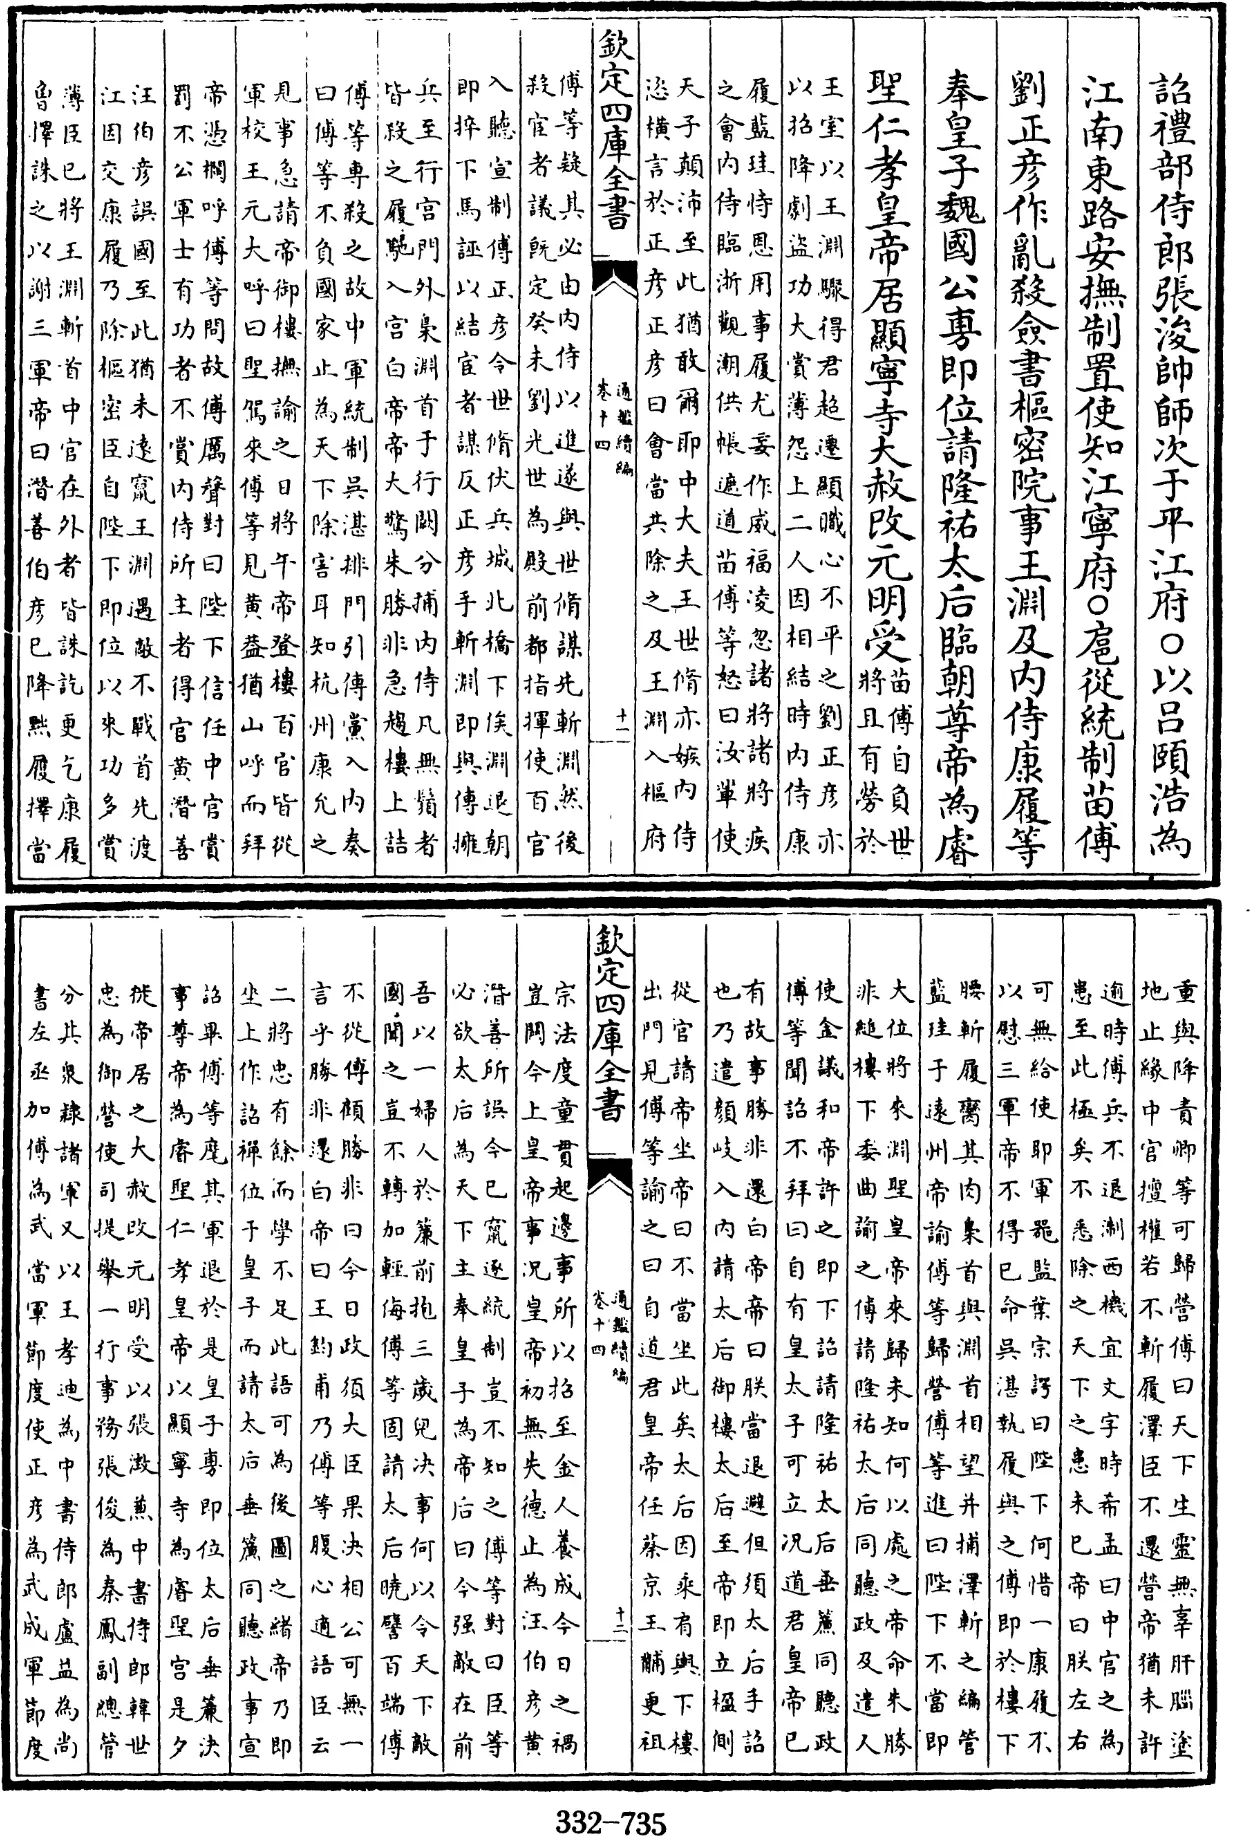 詔禮部侍郎張浚帥師次于平江府○以呂頤浩為
江南東路安撫制置使知江寧府○扈從統制苗傅
劉正彥作亂殺僉書樞密院事王淵及內侍康履等
奉皇子魏國公旉即位請隆祐太后臨朝尊帝為睿
聖仁孝皇帝居顯寧寺大赦改元明受
苗傅自負世
將且有勞於
王室以王淵驟得君超遷顯職心不平之劉正彥亦
以招降劇盜功大賞薄怨上二人因相結時內侍康
履藍珪恃恩用事履尤妄作威福凌忽諸將諸將疾
之會內侍臨浙觀潮供帳遮道苗傅等怒曰汝輩使
天子顛沛至此猶敢爾耶中大夫王世脩亦嫉內侍
恣橫言於正彥正彥曰會當共除之及王淵入樞府
欽定四庫全書
通鑑續編
卷十四
十一
傅等疑其必由內侍以進遂與世脩謀先斬淵然後
殺宦者議既定癸未劉光世為殿前都指揮使百官
入聽宣制傅正彥令世脩伏兵城北橋下俟淵退朝
即捽下馬誣以結宦者謀反正彥手斬淵即與傅擁
兵至行宮門外梟淵首于行闕分捕內侍凡無鬚者
皆殺之履馳入宮白帝帝大驚朱勝非急趨樓上詰
傅等專殺之故中軍統制吳湛排門引傅黨入內奏
曰傅等不負國家止為天下除害耳知杭州康允之
見事急請帝御樓撫諭之日將午帝登樓百官皆從
軍校王元大呼曰聖駕來傅等見黃蓋猶山呼而拜
帝憑欄呼傅等問故傅厲聲對曰陛下信任中官賞
罰不公軍士有功者不賞內侍所主者得官黃潛善
汪伯彥誤國至此猶未遠竄王淵遇敵不戰首先渡
江因交康履乃除樞密臣自陛下即位以來功多賞
薄臣已將王淵斬首中官在外者皆誅訖更乞康履
曾擇誅之以謝三軍帝曰潛善伯彥已降黜履擇當
重與降責卿等可歸營傅曰天下生靈無辜肝腦塗
地止緣中官擅權若不斬履澤臣不還營帝猶未許
逾時傅兵不退浙西機宜文字時希孟曰中官之為
患至此極矣不悉除之天下之患未已帝曰朕左右
可無給使耶軍器監葉宗諤曰陛下何惜一康履不
以慰三軍帝不得已命吳湛執履與之傅即於樓下
腰斬履臠其肉梟首與淵首相望并捕澤斬之編管
藍珪于遠州帝諭傅等歸營傅等進曰陛下不當即
大位將來淵聖皇帝來歸未知何以處之帝命朱勝
非縋樓下委曲諭之傅請隆祐太后同聽政及遣人
使金議和帝許之即下詔請隆祐太后垂簾同聽政
傅等聞詔不拜曰自有皇太子可立況道君皇帝已
有故事勝非還白帝帝曰朕當退避但須太后手詔
也乃遣顏岐入內請太后御樓太后至帝即立楹側
從官請帝坐帝曰不當坐此矣太后因乘肩輿下樓
出門見傅等諭之曰自道君皇帝任蔡京王黼更祖
欽定四庫全書
通鑑續編
卷十四
十二
宗法度童貫起邊事所以招至金人養成今日之禍
豈關今上皇帝事況皇帝初無失德止為汪伯彥黃
潛善所誤今已竄逐統制豈不知之傅等對曰臣等
必欲太后為天下主奉皇子為帝后曰今强敵在前
吾以一婦人於簾前抱三歲兒決事何以令天下敵
國聞之豈不轉加輕侮傅等固請太后曉譬百端傅
不從傅顧勝非曰今日政須大臣果決相公可無一
言乎勝非還白帝曰王鈞甫乃傅等腹心適語臣云
二將忠有餘而學不足此語可為後圖之緒帝乃即
坐上作詔禪位于皇子而請太后垂簾同聽政事宣
詔畢傅等麾其軍退於是皇子旉即位太后垂簾決
事尊帝為睿聖仁孝皇帝以顯寧寺為睿聖宮是夕
徙帝居之大赦改元明受以張澂兼中書侍郎韓世
忠為御營使司提舉一行事務張俊為秦鳳副總管
分其衆隸諸軍又以王孝迪為中書侍郎盧益為尚
書左丞加傅為武當軍節度使正彥為武成軍節度
332-735